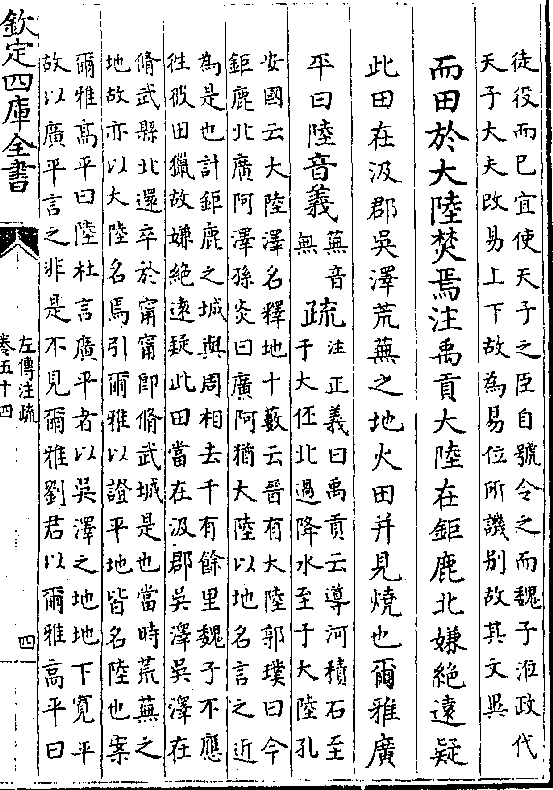 徒役而已宜使天子之臣自號令之而魏子涖政代
天子大夫改易上下故為易位所譏别故其文異
而田於大陸焚焉注禹貢大陸在鉅鹿北嫌絶遠疑
此田在汲郡吳澤荒蕪之地火田并見燒也爾雅廣
平曰陸音義
蕪音
無
疏
注正義曰禹貢云導河積石至
于大伾北過降水至于大陸孔
安國云大陸澤名釋地十藪云晉有大陸郭璞曰今
鉅鹿北廣阿澤孫炎曰廣阿猶大陸以地名言之近
為是也計鉅鹿之城與周相去千有餘里魏子不應
往彼田獵故嫌絶遠疑此田當在汲郡吳澤吳澤在
脩武縣北還卒於甯甯即脩武城是也當時荒蕪之
地故亦以大陸名焉引爾雅以證平地皆名陸也案
爾雅高平曰陸杜言廣平者以吳澤之地地下寛平
故以廣平言之非是不見爾雅劉君以爾雅高平曰
欽定四庫全書
左傳注疏
卷五十四
四